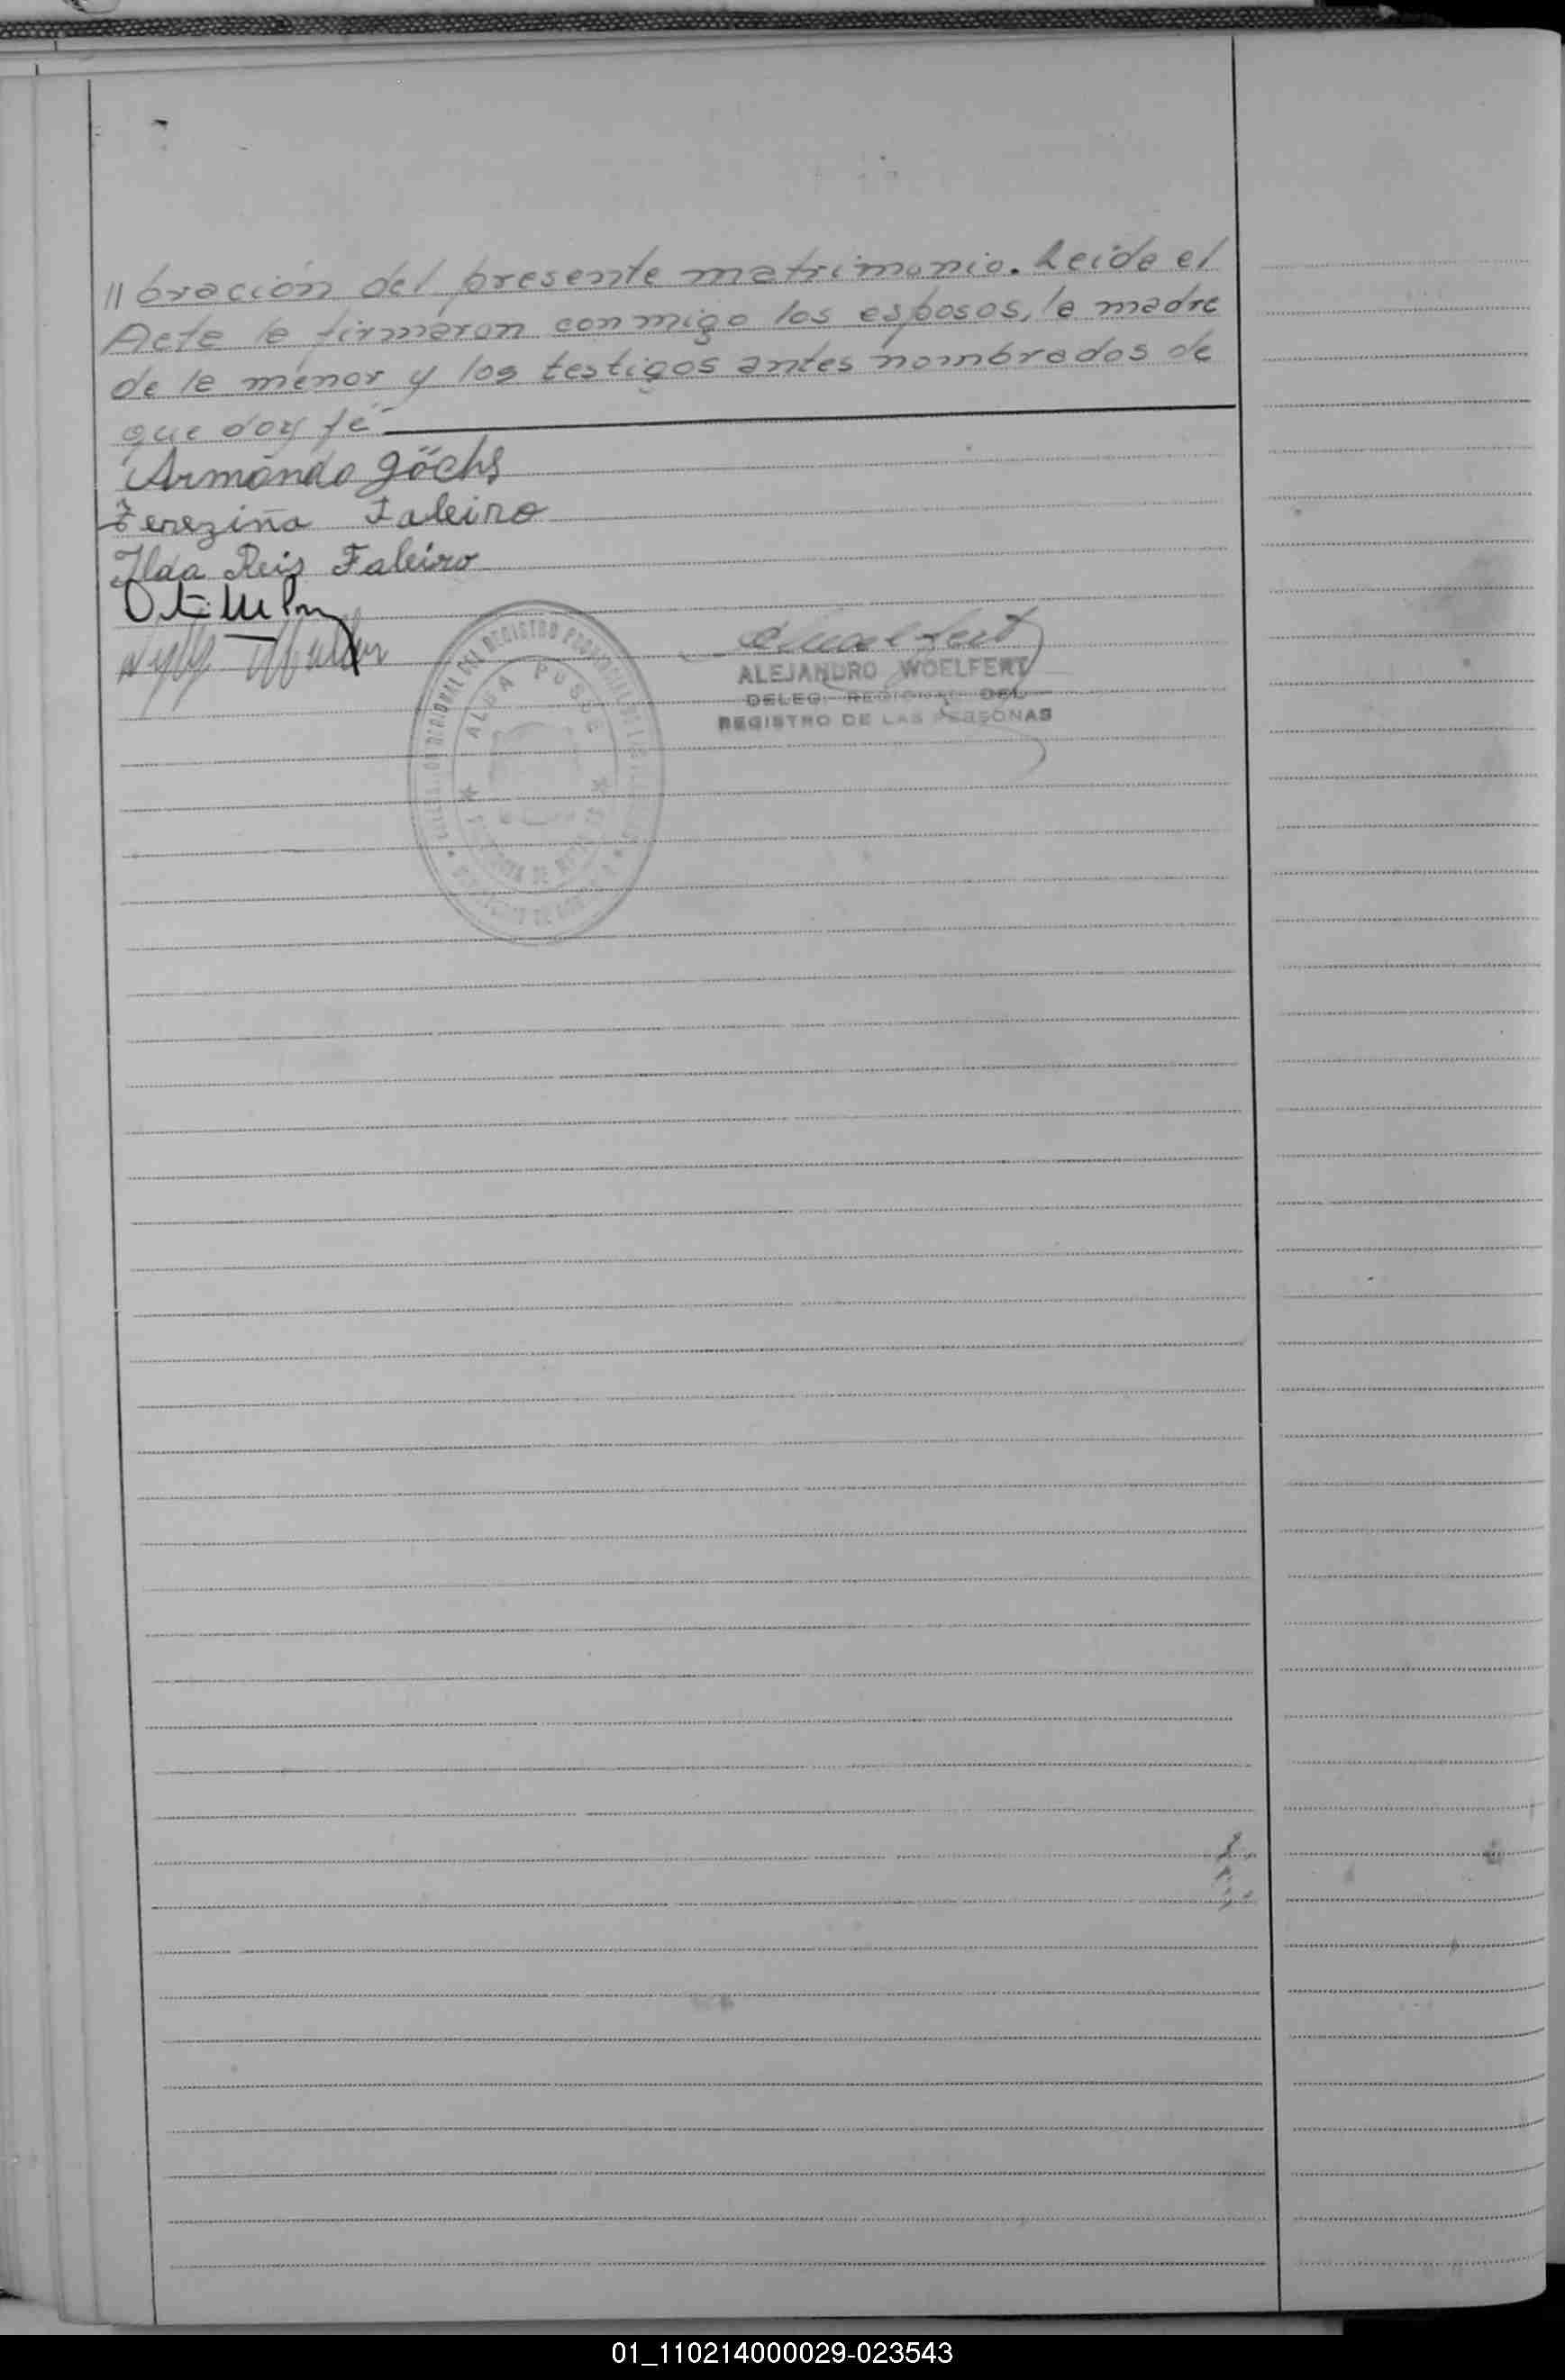 // bración del presente matrimonio. Leida el
Acta la firmaron conmigo los esposos, la madre
de la menor y los testigos antes nombrados de
que doy fé
Armando Göchs
Tereziña Faleiro
Ilda Reis Faleiro
ALEJANDRO WOELFERT
DELEG. REGIONAL DEL
REGISTRO DE LAS PERSONAS
REGIONAL DEL REGISTRO PROVINCIAL DE LAS
ALBA POSSE
01_110214000029-023543